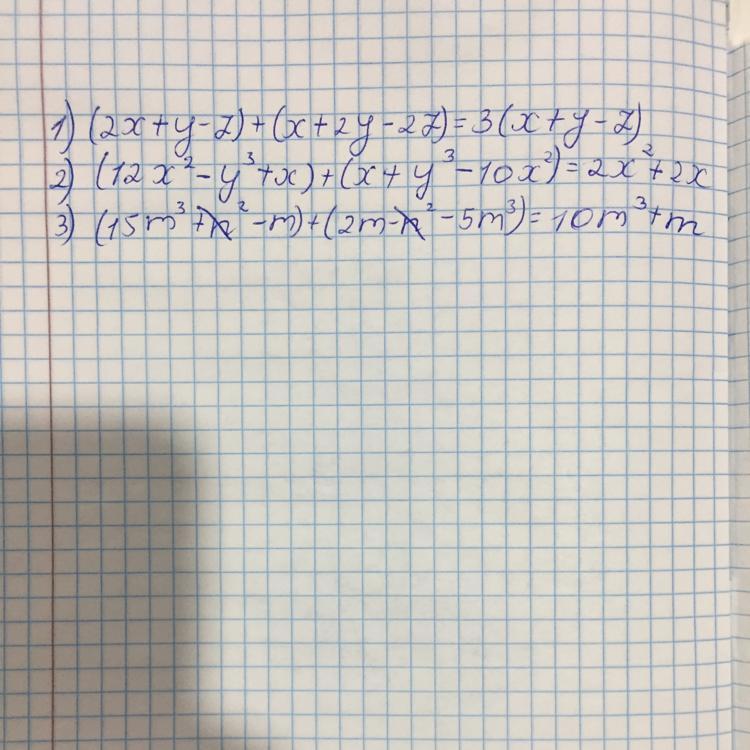 1) (2x+y-z)+(x+2y-2z)=3(x+y-z)
2) (12x²-y³+x)+(x+y³-10x²)=2x²+2x
3) (15m³+n²-m)+(2m-n²-5m³)=10m³+m